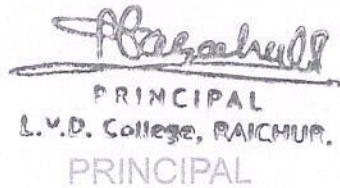 PRINCIPAL
L.V.D. College, RAICHUR.
PRINCIPAL